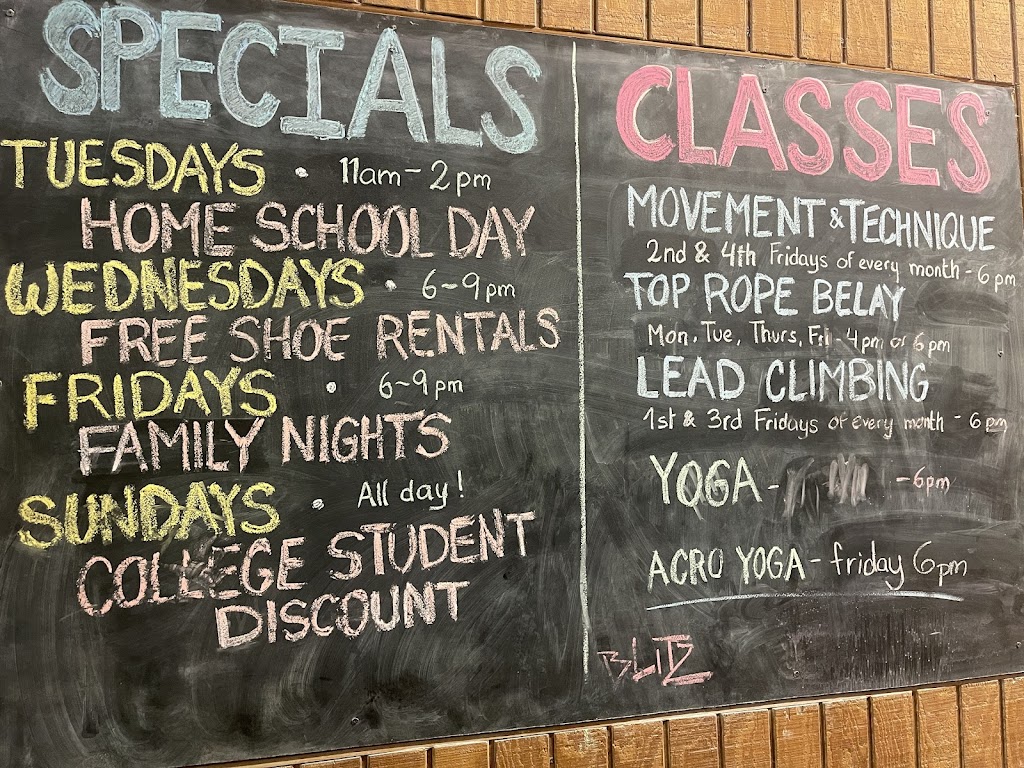 SPECIALS
TUESDAYS • 11am - 2pm
HOME SCHOOL DAY
WEDNESDAYS • 6-9pm
FREE SHOE RENTALS
FRIDAYS • 6-9pm
FAMILY NIGHTS
SUNDAYS • All day!
COLLEGE STUDENT
DISCOUNT
CLASSES
MOVEMENT & TECHNIQUE
2nd & 4th Fridays of every month - 6pm
TOP ROPE BELAY
Mon, Tue, Thurs, Fri - 4pm or 6pm
LEAD CLIMBING
1st & 3rd Fridays of every month - 6pm
YOGA - - 6pm
ACRO YOGA - friday 6pm
BLITZ